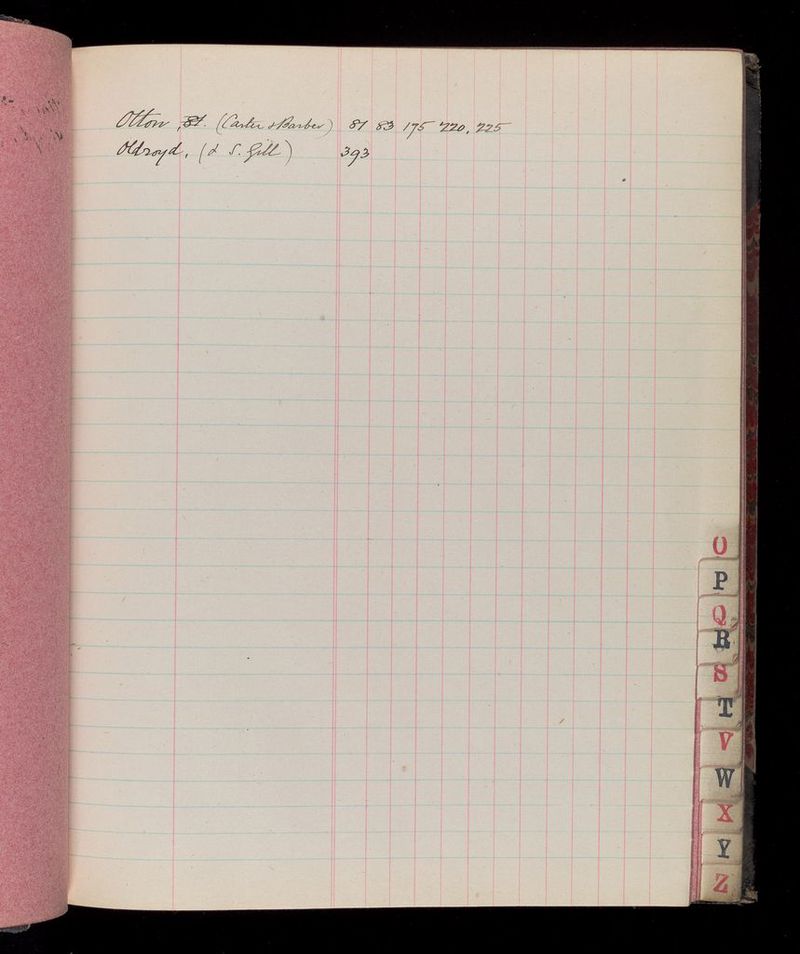 Otton, 81. (Carter & Barber) 81 83 175 220, 225
Oldroyd, (& S. Gill) 393
O
P
Q
R
S
T
V
W
X
Y
Z